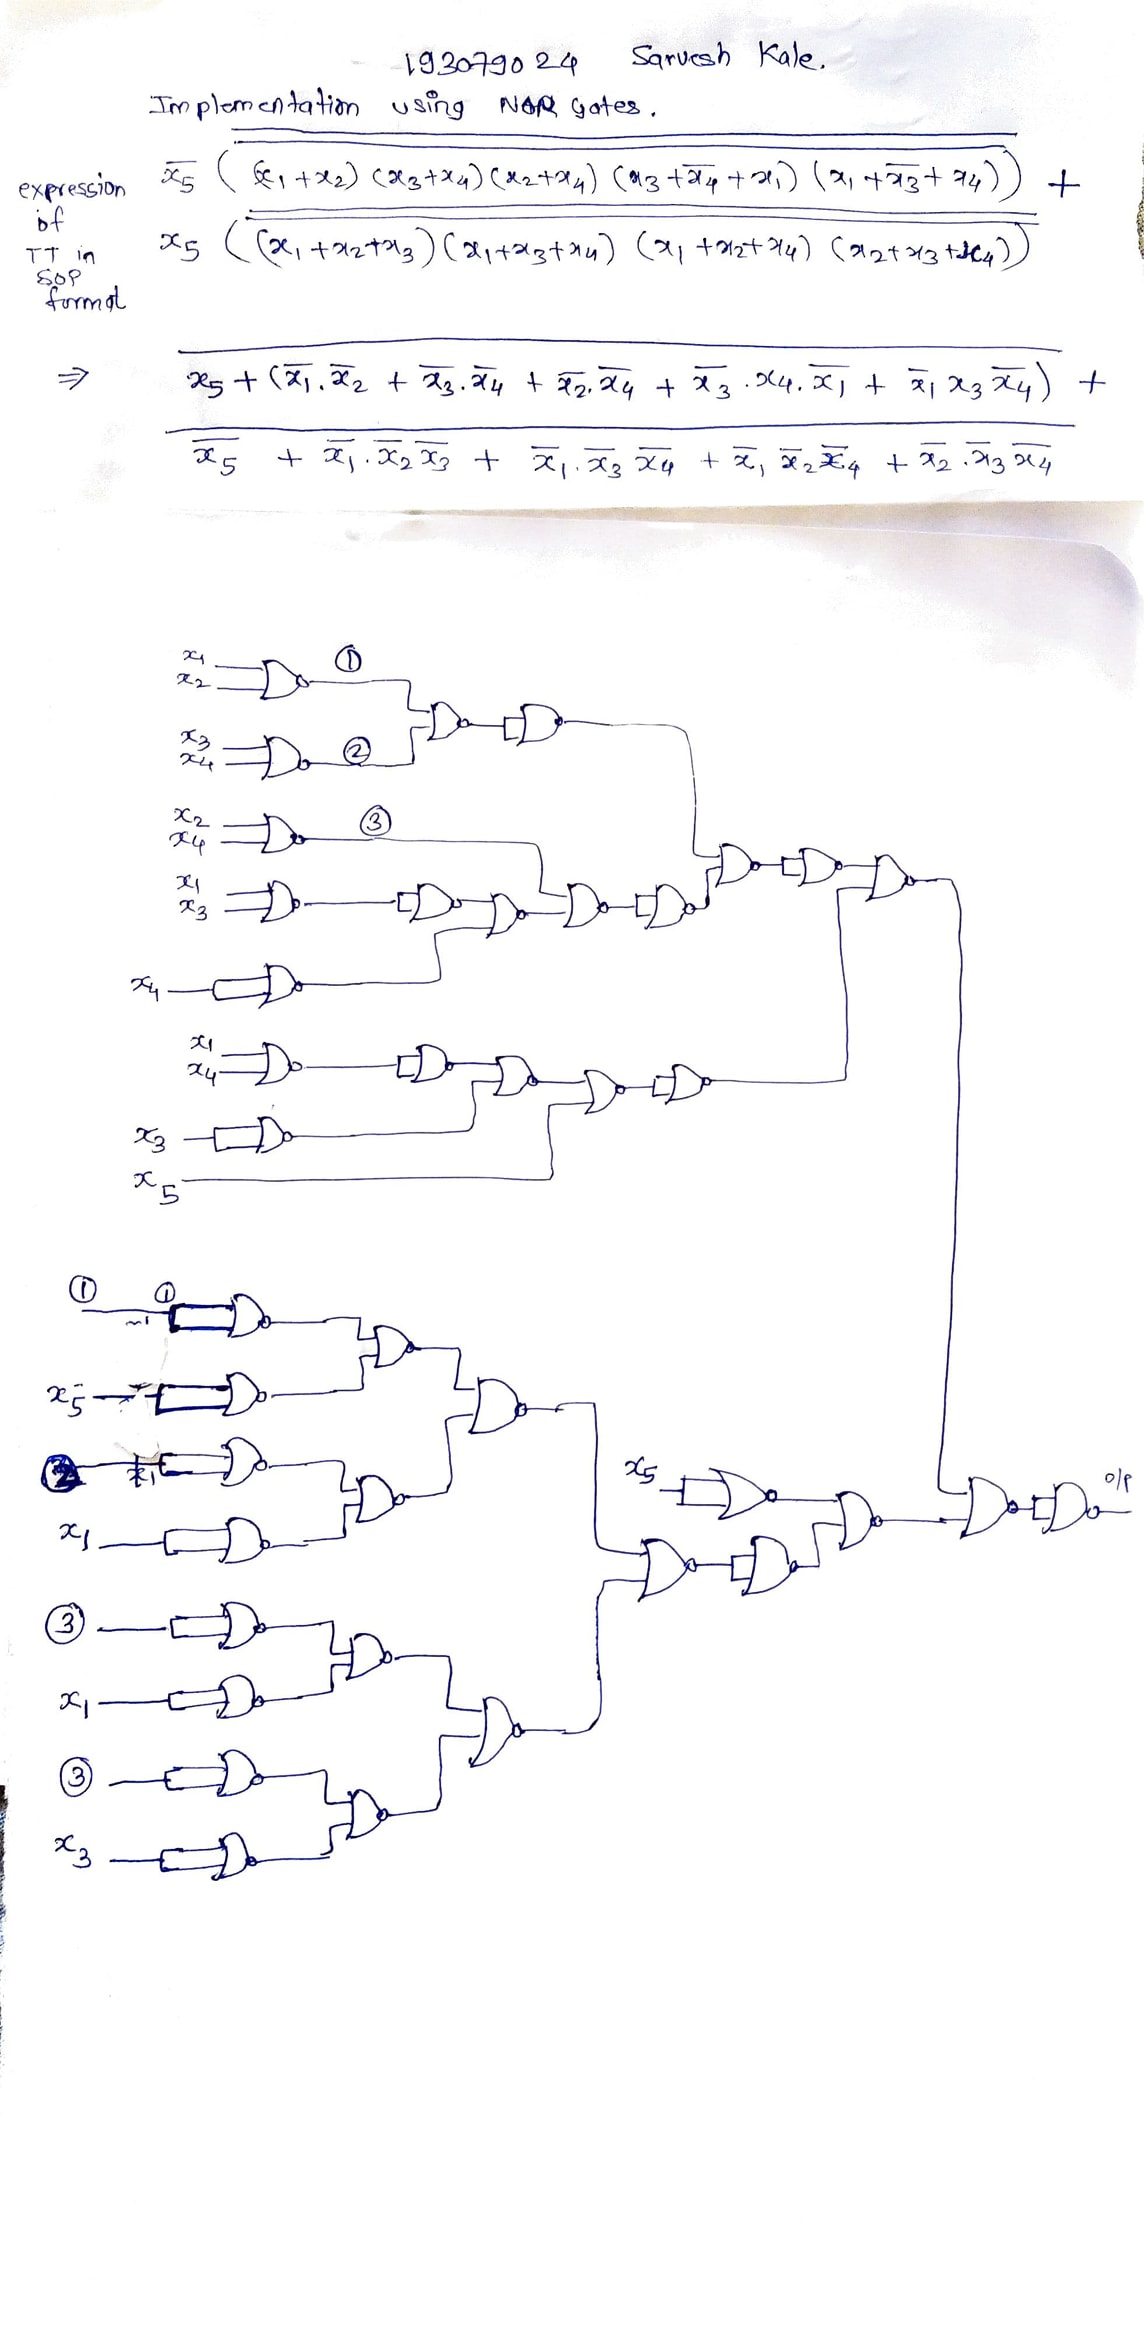 193079024 Sarvesh Kale.
Implementation using NOR Gates.
expression of TT in SOP format
x̅5 ( (x1 + x2) (x3+x4) (x2+x4) (x3 + x̅4 + x1) (x1 + x̅3 + x4) ) +
x5 ( (x1 + x2 + x3) (x1 + x3 + x4) (x1 + x2 + x4) (x2 + x3 + x4) )
⇒ x5 + (x̅1 . x̅2 + x̅3 . x̅4 + x̅2 . x̅4 + x̅3 . x4 . x̅1 + x̅1 x3 x̅4) +
x̅5 + x̅1 . x̅2 x̅3 + x̅1 . x̅3 x̅4 + x̅1 x̅2 x̅4 + x̅2 . x̅3 x̅4
x1
x2
①
x3
x4
②
x2
x4
③
x1
x3
x4
x1
x4
x3
x5
① ①
x5
②
x5
o/p
x1
③
x1
③
x3